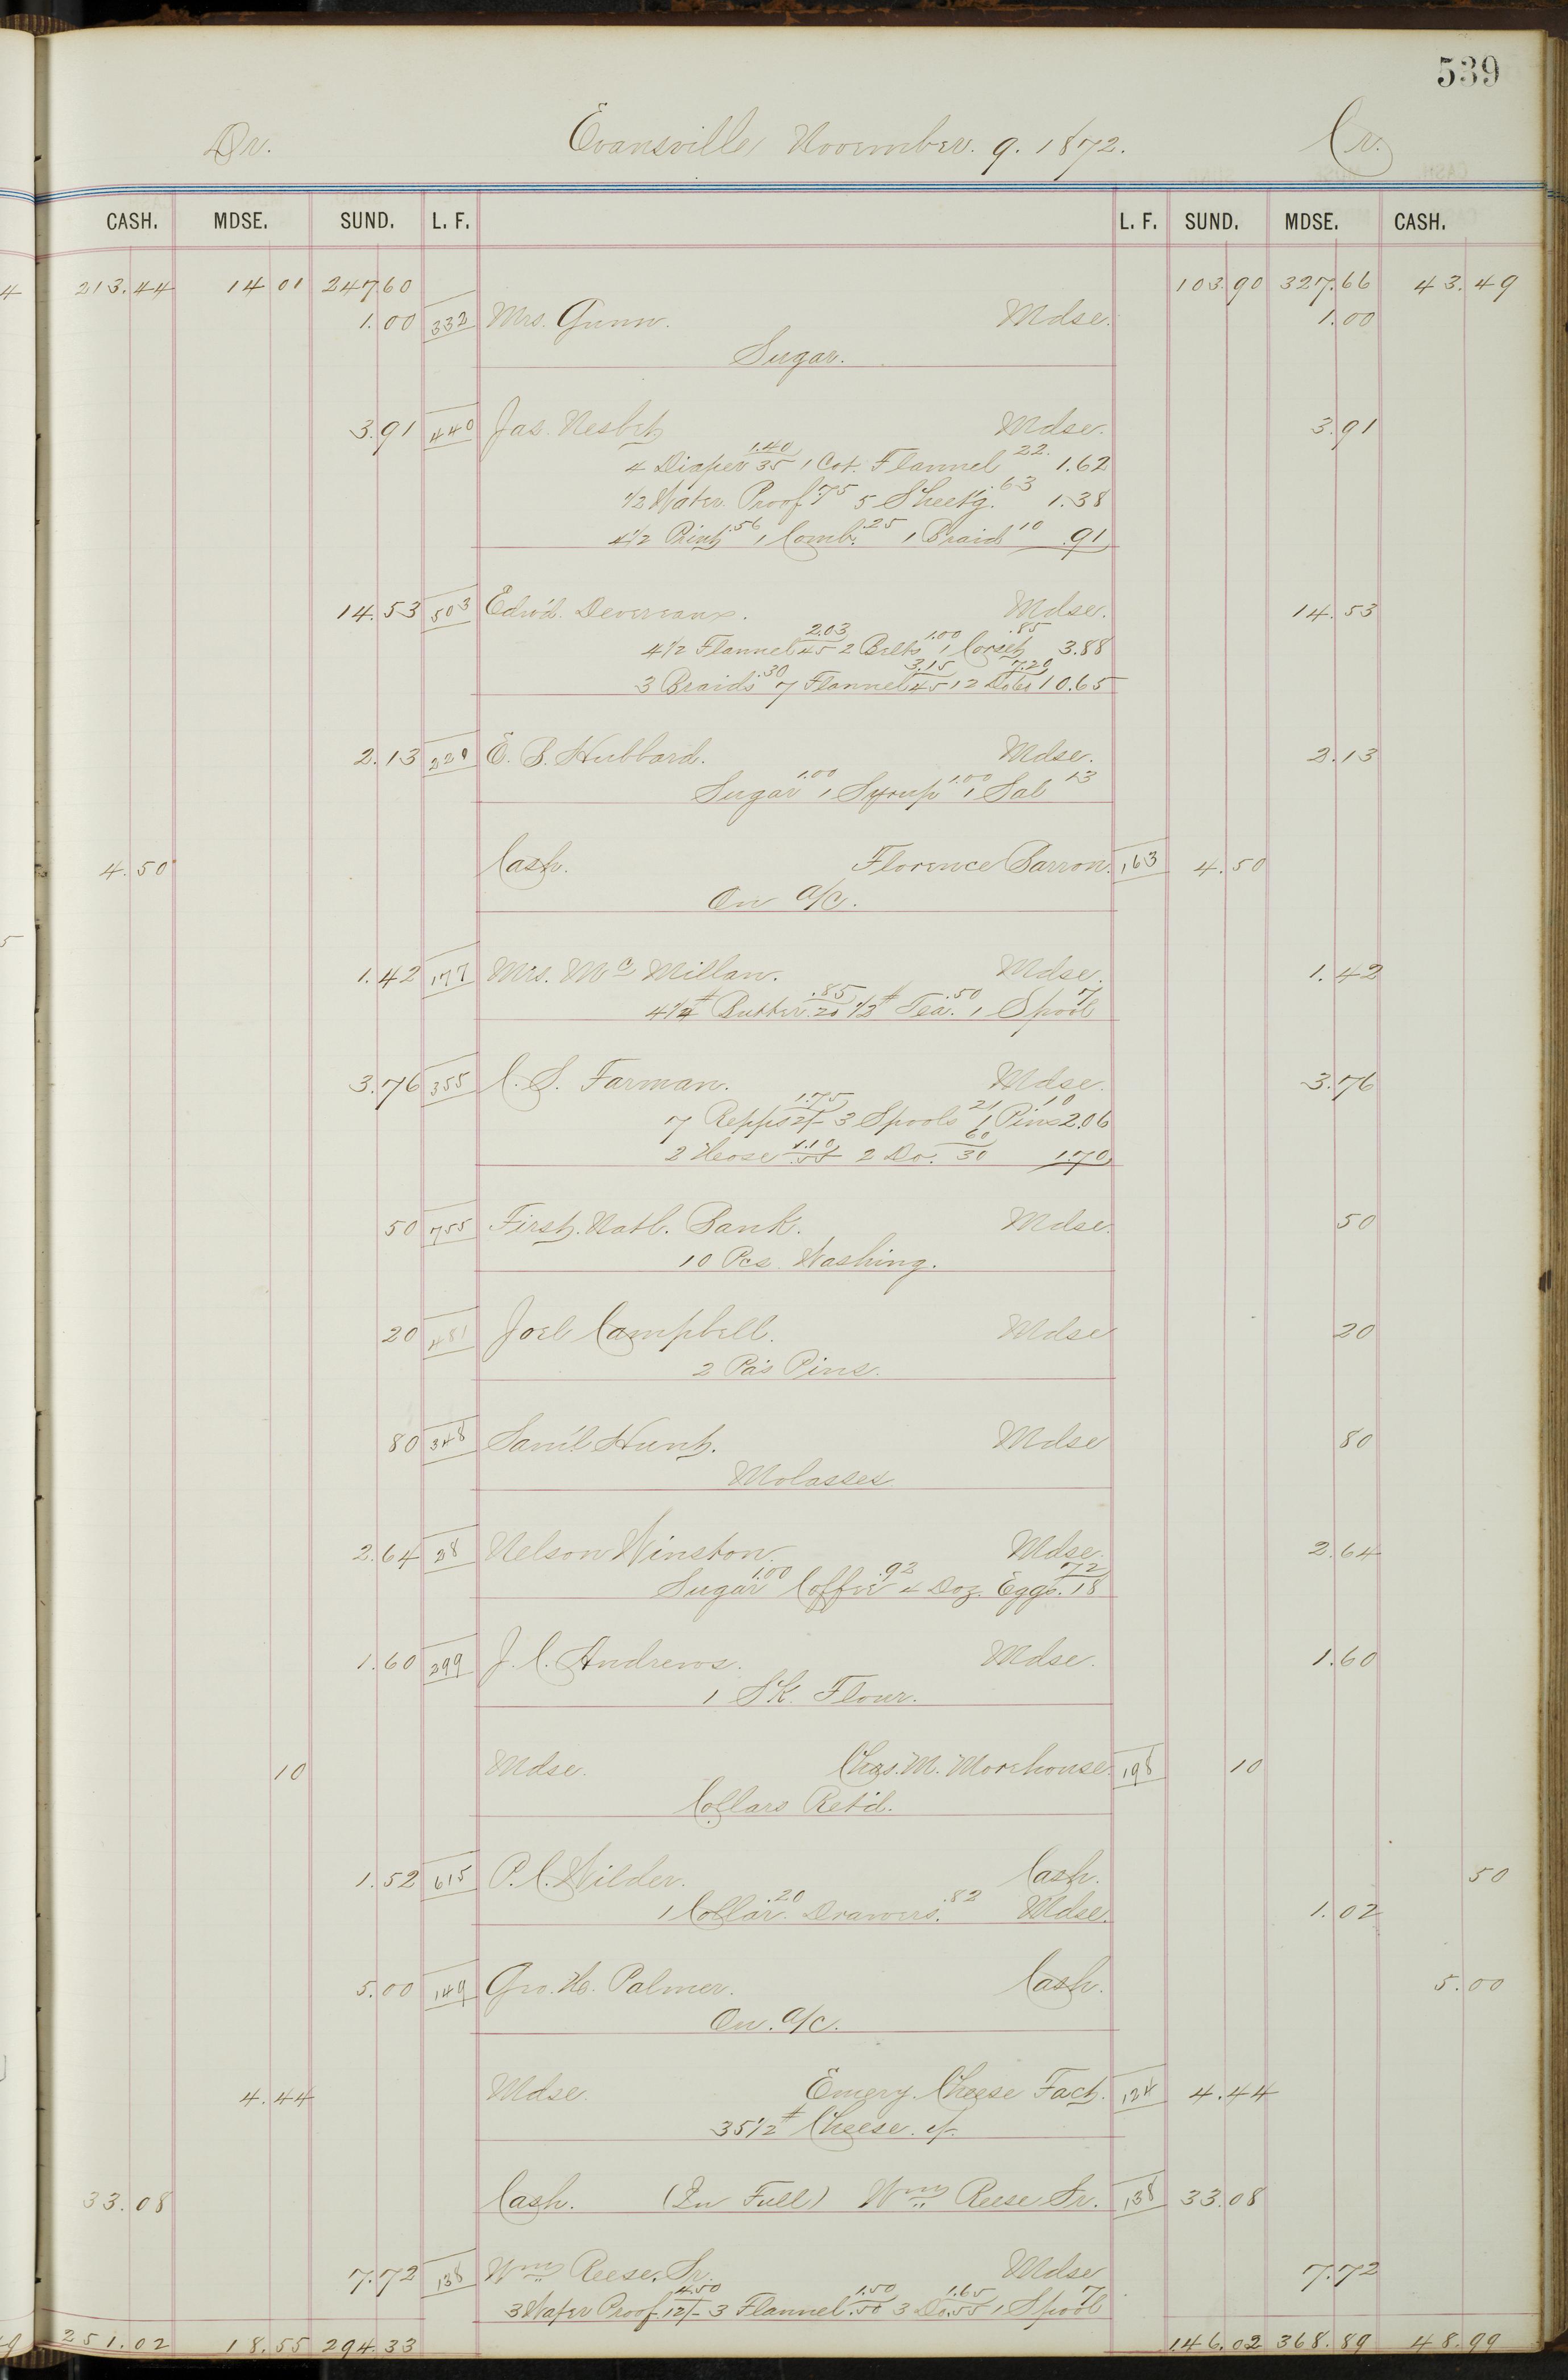 539
Dr. Evansville, November. 9. 1872. Cr.
CASH. MDSE. SUND. L. F. L. F. SUND. MDSE. CASH.
213.44 14 01 247 60 103 90 327.66 43.49
1.00 332 Mrs. Gunn. Mdse. 1.00
Sugar.
3.91 440 Jas. Nesbit Mdse. 3.91
4 Diaper 1.40/35 1 Cot. Flannel 22. 1.62
1/2 Water Proof .75 5 Sheet'g. .63 1.38
4 1/2 Print .56 1 Comb. .25 1 Braid 10 .91
14.53 503 Edw'd. Devereaux. Mdse. 14.53
4 1/2 Flannel 2.03/45 2 Belts 1.00 1 Corset .85 3.88
3 Braids .30 7 Flannel 3.15/45 12 Do 7.20/60 10.65
2.13 229 E. B. Hubbard. Mdse. 2.13
Sugar 1.00 1 Syrup 1.00 1 Sal 13
4.50 Cash. Florence Barron. 163 4.50
On a/c.
1.42 177 Mrs. Mc Millan. Mdse. 1.42
4 1/4 # Butter .85/20 1/2 # Tea. .50 1 Spool 7
3.76 355 C. S. Farman. Mdse. 3.76
7 Repps 1.75/2/- 3 Spools 21 1 Pins 10 2.06
2 Hose 1.10/.55 2 Do. 60/30 1.70
50 755 First. Natl. Bank. Mdse. 50
10 Pcs. Washing.
20 481 Joel Campbell. Mdse 20
2 Pa's Pins.
80 348 Sam'l Hunt. Mdse 80
Molasses
2.64 28 Nelson Winston. Mdse. 2.64
Sugar 1.00 Coffee .92 4 Doz. Eggs. 72/18
1.60 299 J. C. Andrews. Mdse. 1.60
1 Sk. Flour.
10 Mdse. Chas. M. Morehouse. 198 10
Collars Ret'd.
1.52 615 P. C. Wilder. Cash. 50
1 Collar. .20 Drawers. .82 Mdse. 1.02
5.00 149 Geo. H. Palmer. Cash. 5.00
On. a/c.
4.44 Mdse. Emery. Cheese Fact. 124 4.44
35 1/2 # Cheese. 1/-
33.08 Cash. (In Full) Wm Reese Sr. 138 33.08
7.72 138 Wm Reese. Sr. Mdse 7.72
3 Water Proof 4.50/12/- 3 Flannel 1.50/.50 3 Do 1.65/.55 1 Spool 7
251.02 18.55 294.33 146.02 368.89 48.99